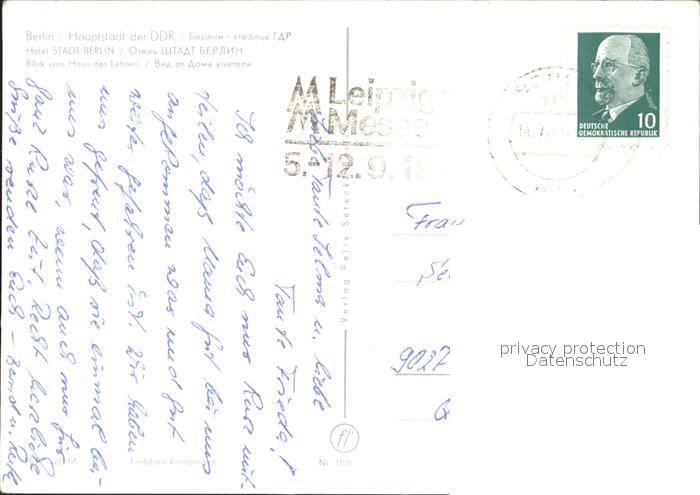 Berlin - Hauptstadt der DDR / Берлин - столица ГДР
Hotel STADT BERLIN / Отель ШТАДТ БЕРЛИН
Blick vom Haus des Lehrers / Вид от Дома учителя
MM Leipziger
Messe
5.-12.9.19
10
DEUTSCHE
DEMOKRATISCHE REPUBLIK
Liebe Tante Selma u. liebe
Tante Frieda,
Ich möchte Euch nur kurz mit-
teilen, daß Mama gut bei uns
angekommen war und gut
weiter gefahren ist. Wir haben
uns gefreut, daß sie einmal bei
uns war, wenn auch nur für
ganz kurze Zeit. Recht herzliche
Grüße senden Euch
Verlag Felix Setecki
Frau
9027
privacy protection
Datenschutz
M
Farbfoto Kampmann
Nr. 1101
ff